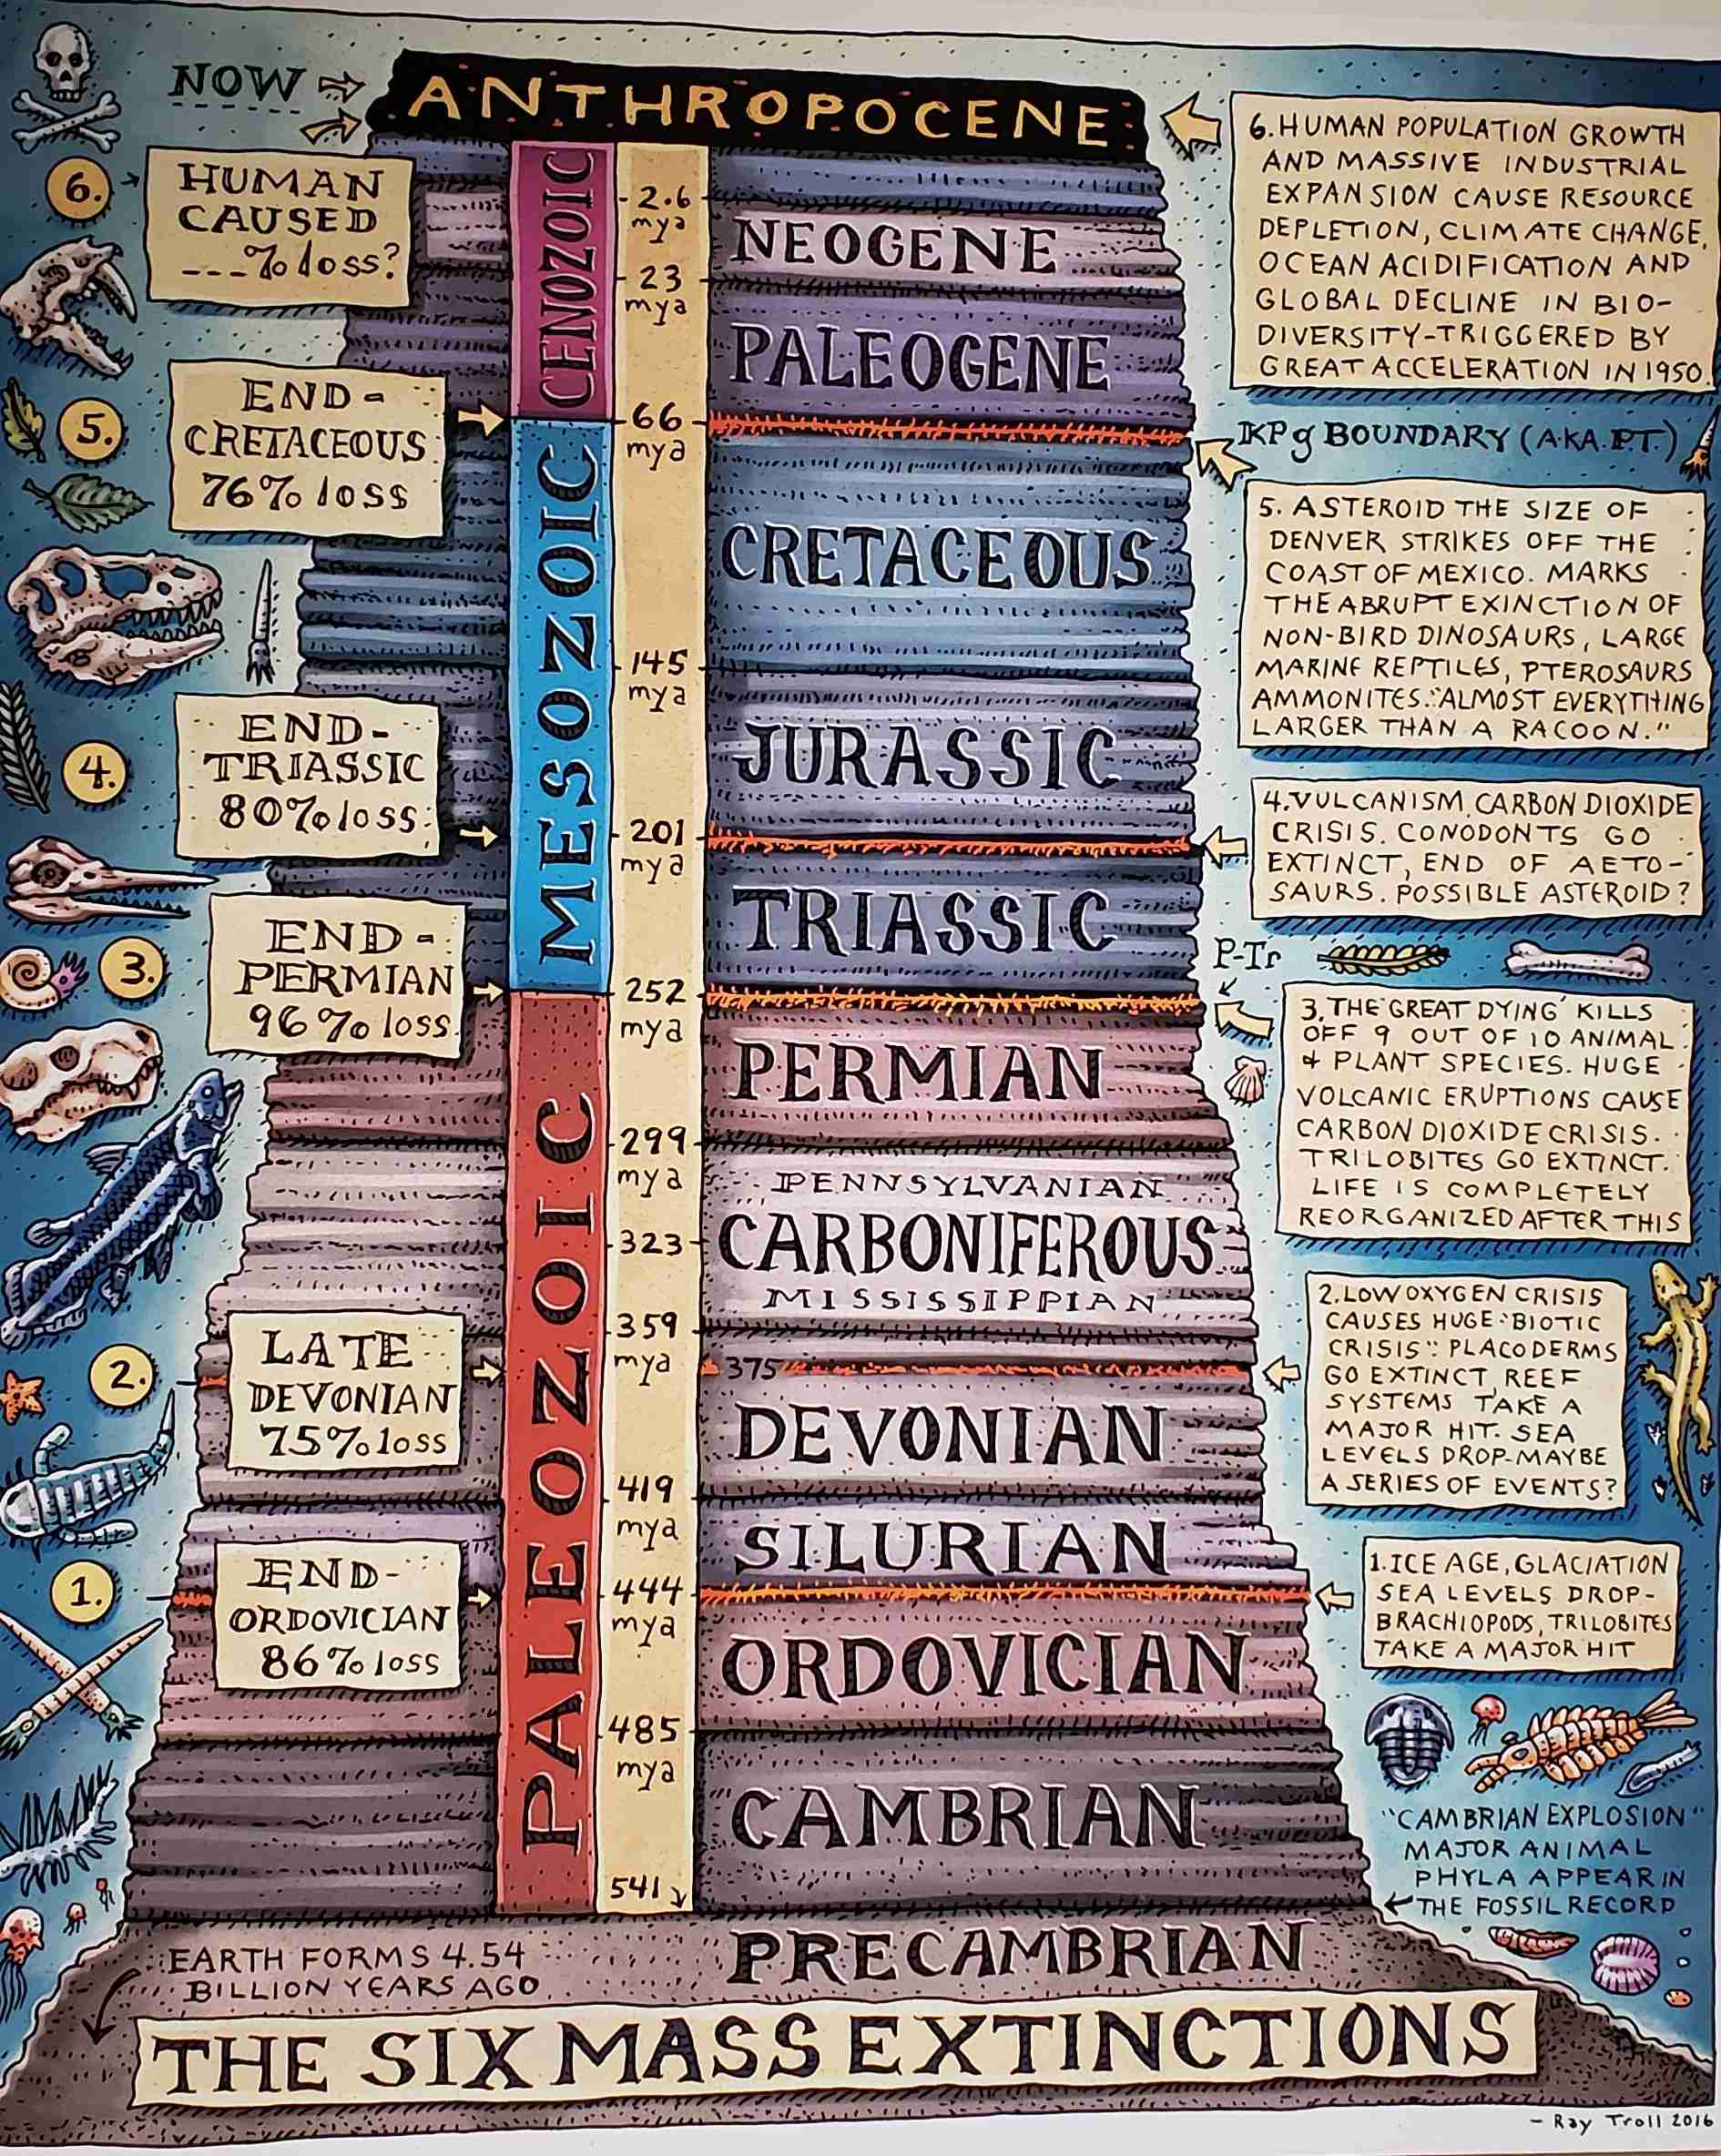 NOW
ANTHROPOCENE
6.
HUMAN
CAUSED
---% loss?
6. HUMAN POPULATION GROWTH
AND MASSIVE INDUSTRIAL
EXPANSION CAUSE RESOURCE
DEPLETION, CLIMATE CHANGE,
OCEAN ACIDIFICATION AND
GLOBAL DECLINE IN BIO-
DIVERSITY-TRIGGERED BY
GREAT ACCELERATION IN 1950.
CENOZOIC
2.6
mya
NEOGENE
23
mya
PALEOGENE
5.
END-
CRETACEOUS
76% loss
66
mya
KPg BOUNDARY (A.K.A. P.T.)
5. ASTEROID THE SIZE OF
DENVER STRIKES OFF THE
COAST OF MEXICO. MARKS
THE ABRUPT EXINCTION OF
NON-BIRD DINOSAURS, LARGE
MARINE REPTILES, PTEROSAURS
AMMONITES. "ALMOST EVERYTHING
LARGER THAN A RACOON."
MESOZOIC
CRETACEOUS
145
mya
JURASSIC
4.
END-
TRIASSIC
80% loss
201
mya
4. VULCANISM. CARBON DIOXIDE
CRISIS. CONODONTS GO
EXTINCT, END OF AETO-
SAURS. POSSIBLE ASTEROID?
TRIASSIC
P-Tr
3.
END-
PERMIAN
96% loss
252
mya
3. THE 'GREAT DYING' KILLS
OFF 9 OUT OF 10 ANIMAL
& PLANT SPECIES. HUGE
VOLCANIC ERUPTIONS CAUSE
CARBON DIOXIDE CRISIS.
TRILOBITES GO EXTINCT.
LIFE IS COMPLETELY
REORGANIZED AFTER THIS
PALEOZOIC
PERMIAN
299
mya
PENNSYLVANIAN
323
CARBONIFEROUS
MISSISSIPPIAN
359
mya
375
2.
LATE
DEVONIAN
75% loss
2. LOW OXYGEN CRISIS
CAUSES HUGE "BIOTIC
CRISIS": PLACODERMS
GO EXTINCT REEF
SYSTEMS TAKE A
MAJOR HIT. SEA
LEVELS DROP-MAYBE
A SERIES OF EVENTS?
DEVONIAN
419
mya
SILURIAN
1.
END-
ORDOVICIAN
86% loss
444
mya
1. ICE AGE, GLACIATION
SEA LEVELS DROP-
BRACHIOPODS, TRILOBITES
TAKE A MAJOR HIT
ORDOVICIAN
485
mya
CAMBRIAN
541
"CAMBRIAN EXPLOSION"
MAJOR ANIMAL
PHYLA APPEAR IN
THE FOSSIL RECORD
PRECAMBRIAN
EARTH FORMS 4.54
BILLION YEARS AGO
THE SIX MASS EXTINCTIONS
- Ray Troll 2016